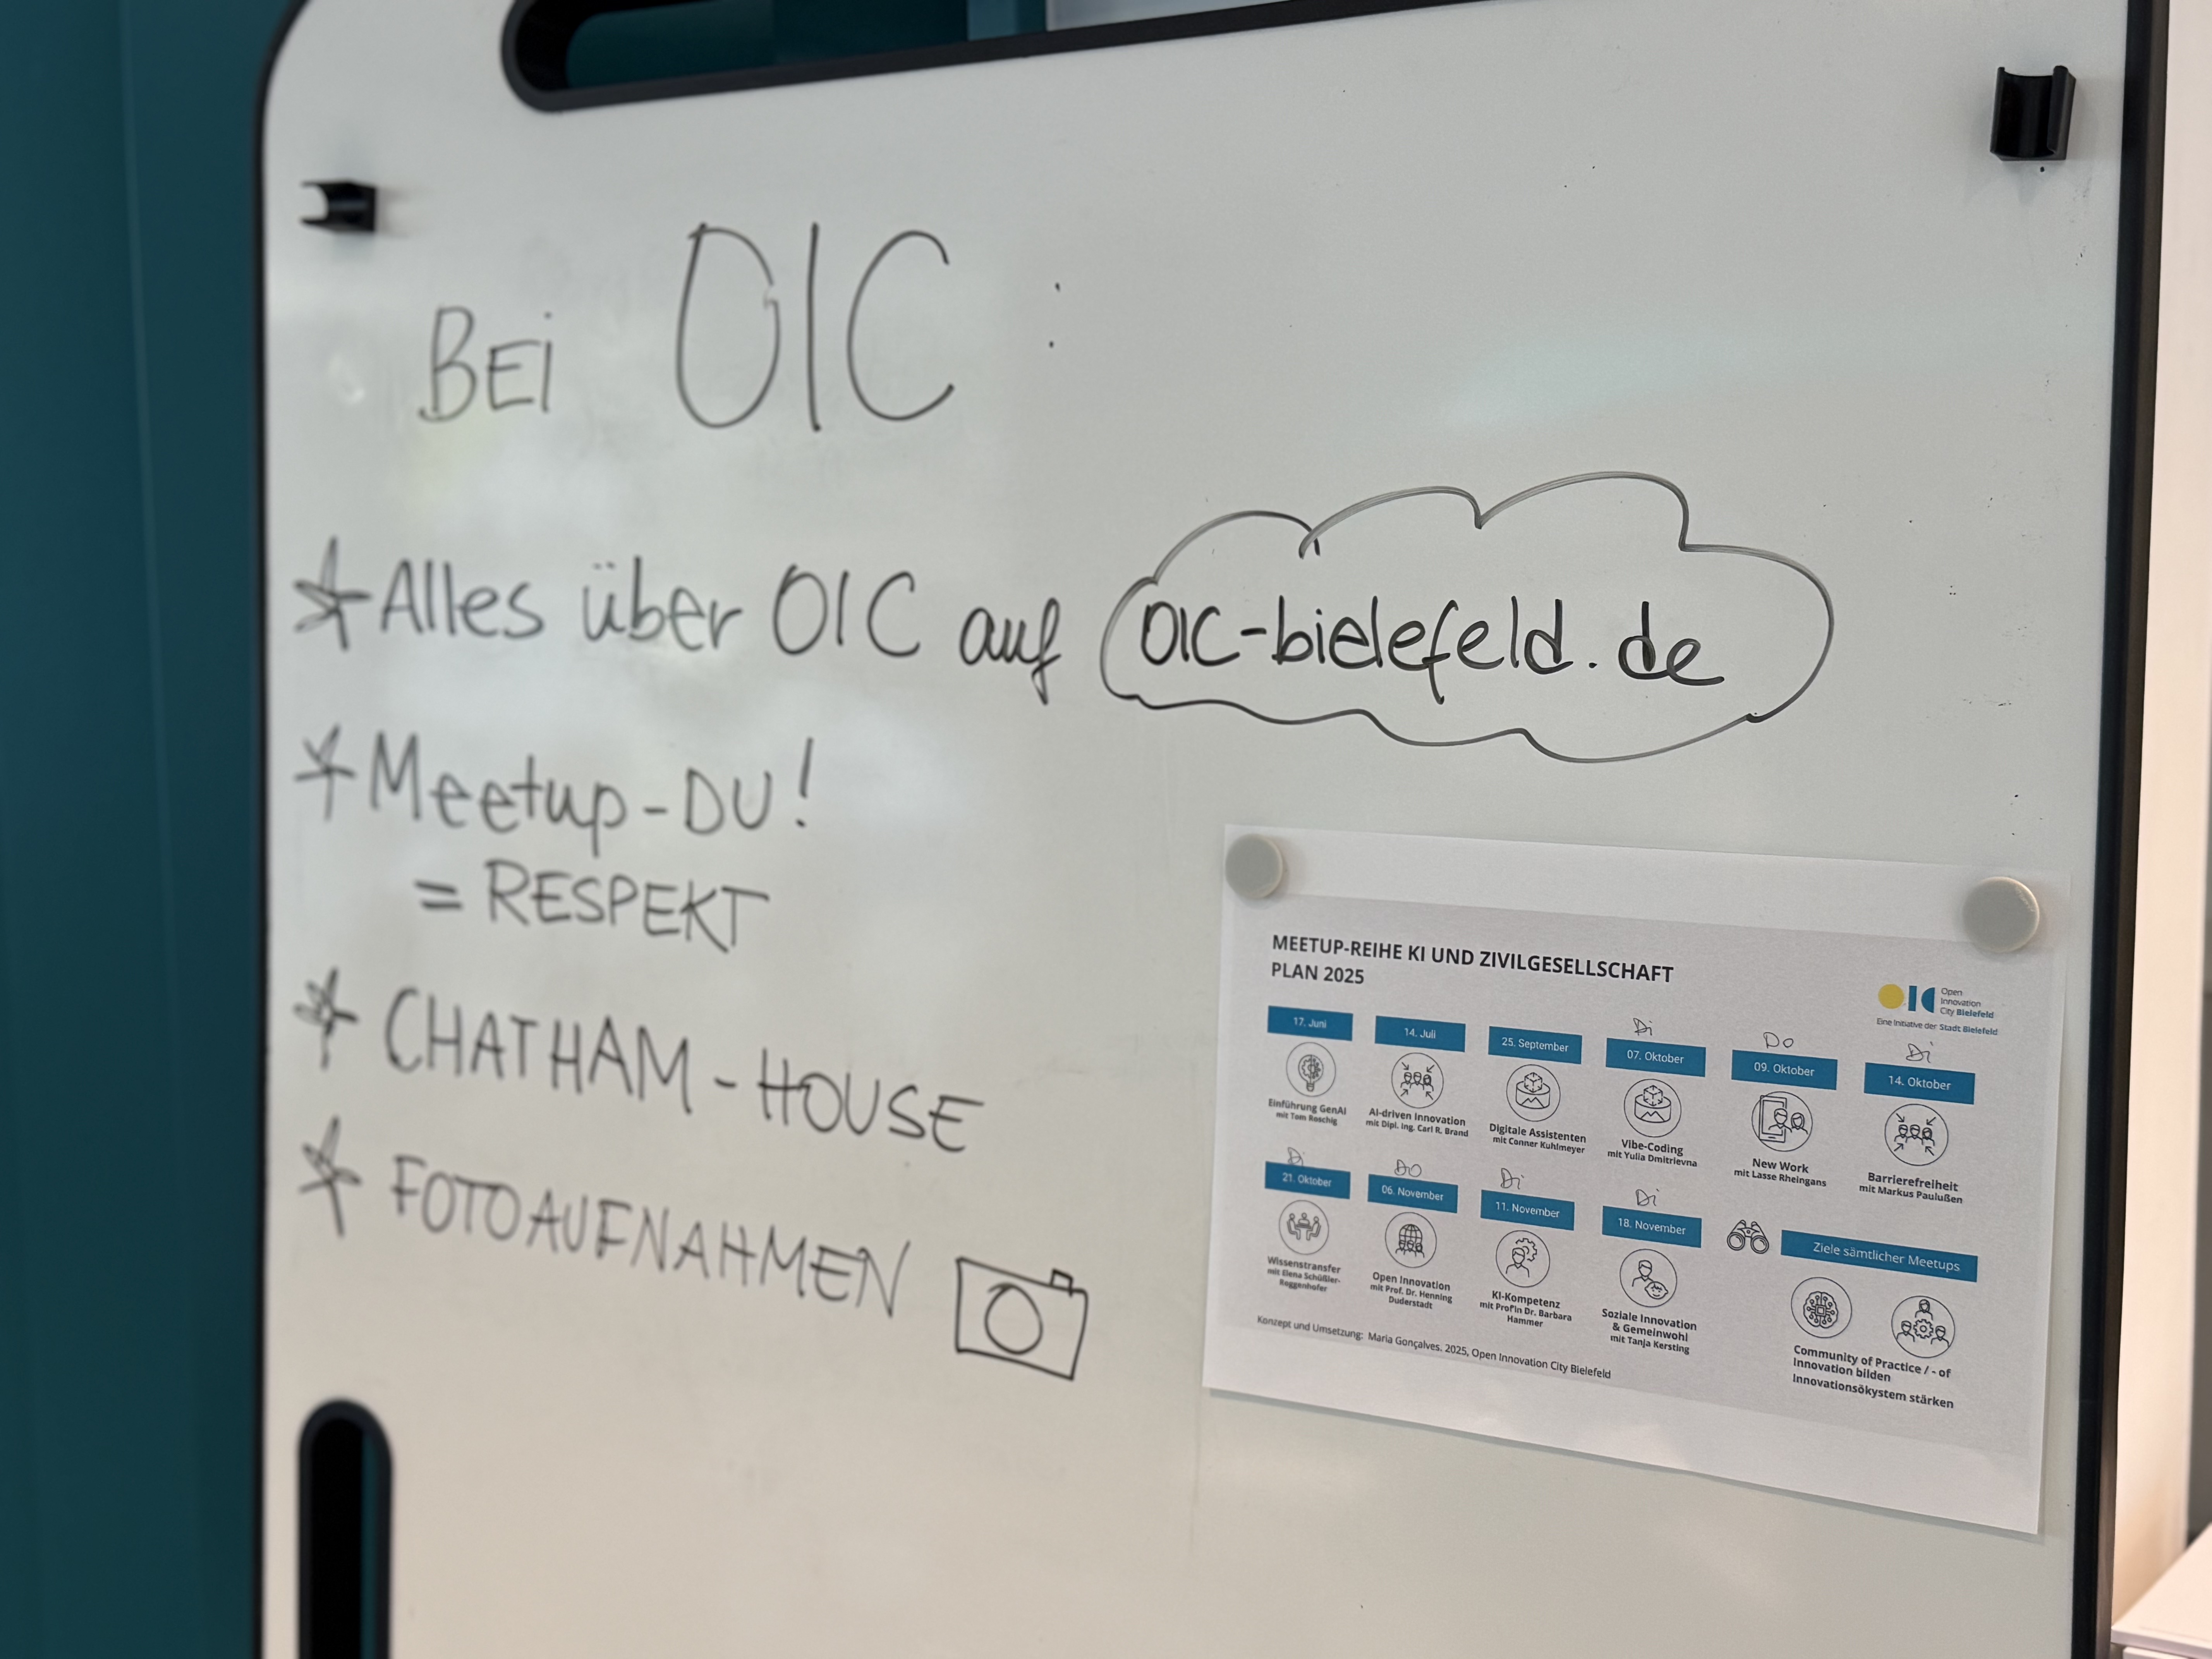 BEI OIC :
* Alles über OIC auf OIC-bielefeld.de
* Meetup-DU!
= RESPEKT
* CHATHAM-HOUSE
* FOTOAUFNAHMEN
MEETUP-REIHE KI UND ZIVILGESELLSCHAFT
PLAN 2025
OIC
Open
Innovation
City Bielefeld
Eine Initiative der Stadt Bielefeld
17. Juni
Einführung GenAI
mit Tom Roschig
14. Juli
AI-driven Innovation
mit Dipl. Ing. Carl R. Brand
25. September
Digitale Assistenten
mit Conner Kuhlmeyer
Di
07. Oktober
Vibe-Coding
mit Yulia Dmitrievna
Do
09. Oktober
New Work
mit Lasse Rheingans
Di
14. Oktober
Barrierefreiheit
mit Markus Paulußen
Di
21. Oktober
Wissenstransfer
mit Elena Schüßler-
Roggenhofer
DO
06. November
Open Innovation
mit Prof. Dr. Henning
Duderstadt
Di
11. November
KI-Kompetenz
mit Prof'in Dr. Barbara
Hammer
Di
18. November
Soziale Innovation
& Gemeinwohl
mit Tanja Kersting
Ziele sämtlicher Meetups
Community of Practice / - of
Innovation bilden
Innovationsökystem stärken
Konzept und Umsetzung: Maria Gonçalves. 2025, Open Innovation City Bielefeld